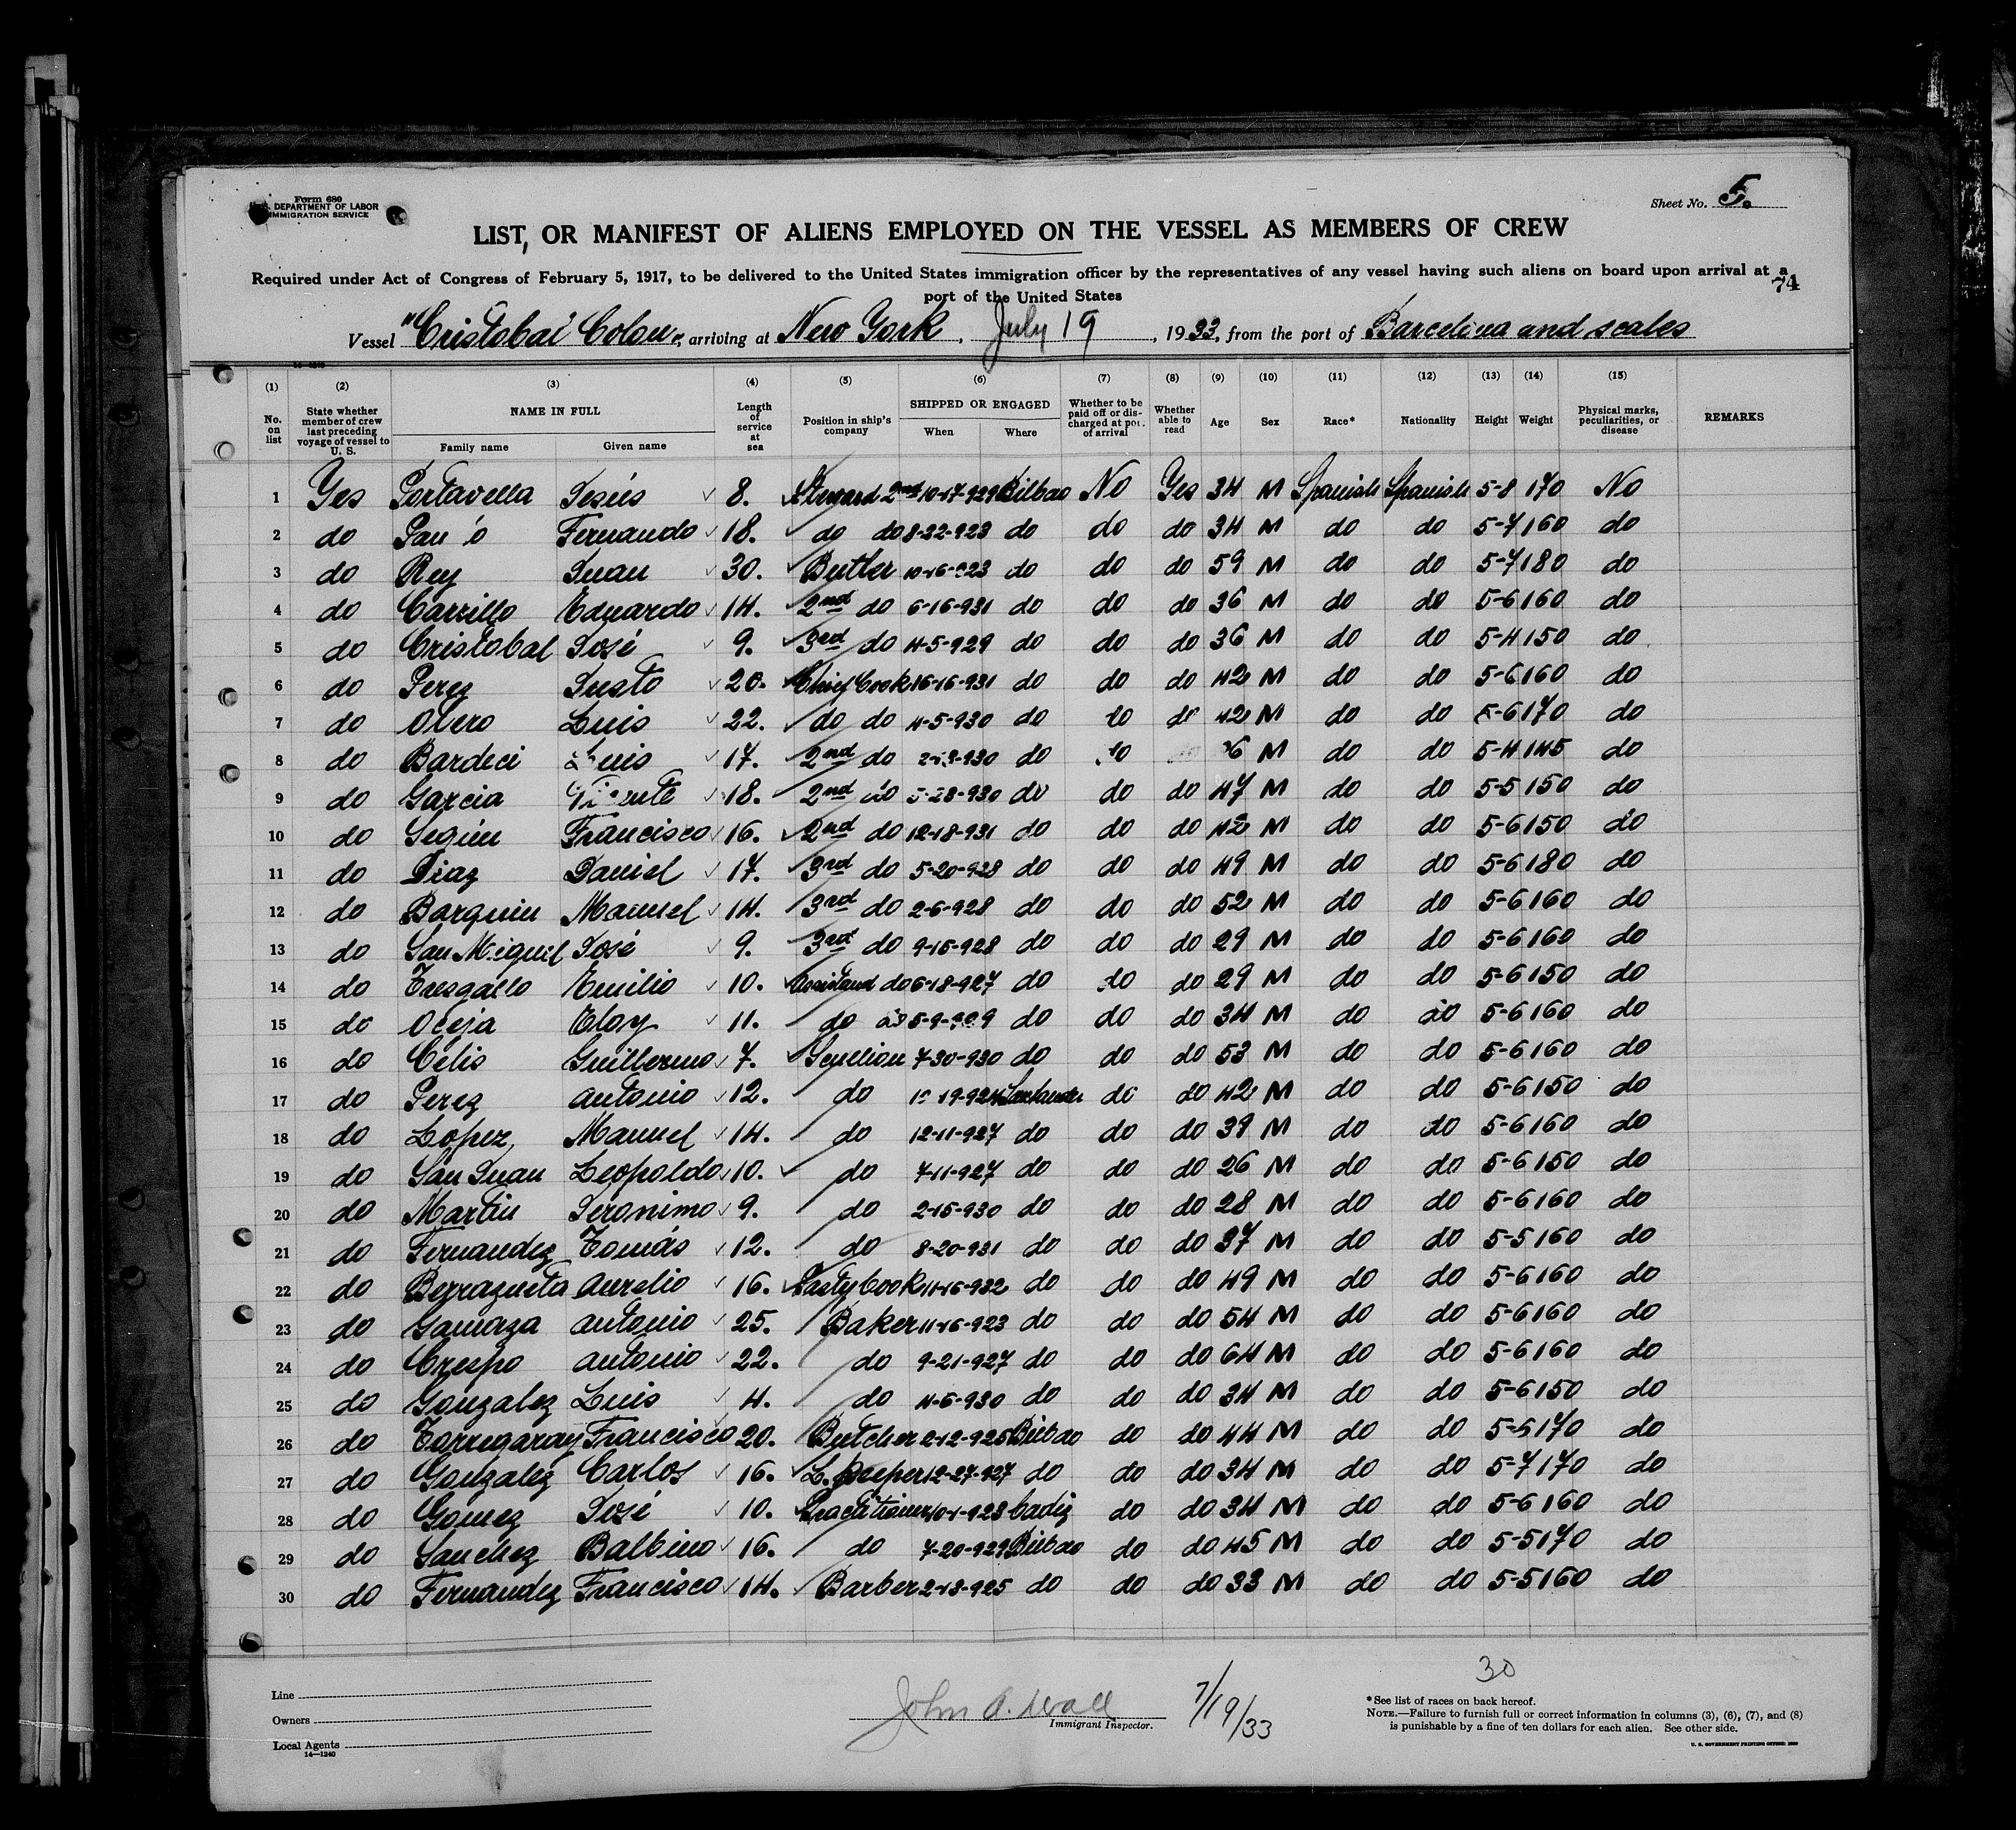 Form 680
U. S. DEPARTMENT OF LABOR
IMMIGRATION SERVICE
Sheet No. 5.
LIST, OR MANIFEST OF ALIENS EMPLOYED ON THE VESSEL AS MEMBERS OF CREW
Required under Act of Congress of February 5, 1917, to be delivered to the United States immigration officer by the representatives of any vessel having such aliens on board upon arrival at a
port of the United States
74
Vessel "Cristobal Colon", arriving at New York, July 19, 1933, from the port of Barcelona and scales
(1) (2) (3) (4) (5) (6) (7) (8) (9) (10) (11) (12) (13) (14) (15)
No. on list State whether member of crew last preceding voyage of vessel to U. S. NAME IN FULL Family name Given name Length of service at sea Position in ship's company SHIPPED OR ENGAGED When Where Whether to be paid off or discharged at port of arrival Whether able to read Age Sex Race* Nationality Height Weight Physical marks, peculiarities, or disease REMARKS
1 Yes Portavella Jesús 8. Steward 2nd 10-17-929 Bilbao No Yes 34 M Spanish Spanish 5-8 170 No
2 do Fernando 18. do do 8-22-923 do do do 34 M do do 5-7 160 do
3 do Rey Juan 30. Butler 10-16-923 do do do 59 M do do 5-7 180 do
4 do Carrillo Eduardo 14. 2nd do 6-16-931 do do do 36 M do do 5-6 160 do
5 do Cristobal José 9. 3rd do 4-5-929 do do do 36 M do do 5-4 150 do
6 do Perez Justo 20. Chief Cook 16-16-931 do do do 42 M do do 5-6 160 do
7 do Otero Luis 22. do do 4-5-930 do do do 42 M do do 5-6 170 do
8 do Bardeci Luis 17. 2nd do do do M do do 5-4 145 do
9 do Garcia Vicente 18. 2nd do 5-28-930 do do do 47 M do do 5-5 150 do
10 do Seguin Francisco 16. 2nd do 12-18-931 do do do 42 M do do 5-6 150 do
11 do Diaz Daniel 17. 3rd do 5-20-928 do do do 49 M do do 5-6 180 do
12 do Barquin Manuel 14. 3rd do 2-6-928 do do do 52 M do do 5-6 160 do
13 do San Miguel José 9. 3rd do 9-15-928 do do do 29 M do do 5-6 160 do
14 do Tresgallo Emilio 10. Assistand do 6-18-927 do do do 29 M do do 5-6 150 do
15 do Oceja Eloy 11. do do 5-9-929 do do do 34 M do do 5-6 160 do
16 do Célis Guillermo 7. Scullion 7-30-930 do do do 53 M do do 5-6 160 do
17 do Perez Antonio 12. do Santander do do 42 M do do 5-6 150 do
18 do Lopez, Manuel 14. do 12-11-927 do do do 39 M do do 5-6 160 do
19 do San Juan Leopoldo 10. do 7-11-927 do do do 26 M do do 5-6 150 do
20 do Martin Jeronimo 9. do 2-15-930 do do do 28 M do do 5-6 160 do
21 do Fernandez Tomás 12. do 8-20-931 do do do 37 M do do 5-5 160 do
22 do Beyragueta Aurelio 16. Pasty Cook 11-16-932 do do do 49 M do do 5-6 160 do
23 do Gamaza Antonio 25. Baker 11-16-923 do do do 54 M do do 5-6 160 do
24 do Crespo Antonio 22. do 9-21-927 do do do 64 M do do 5-6 160 do
25 do Gonzalez Luis 4. do 4-6-930 do do do 34 M do do 5-6 150 do
26 do Torregaray Francisco 20. Butcher 2-12-925 Bilbao do do 44 M do do 5-6 170 do
27 do Gonzalez Carlos 16. L. Keeper 12-27-927 do do do 34 M do do 5-7 170 do
28 do Gomez José 10. Practitioner 10-1-923 Cadiz do do 34 M do do 5-6 160 do
29 do Sanchez Balbino 16. do 7-20-929 Bilbao do do 45 M do do 5-5 170 do
30 do Fernandez Francisco 14. Barber 2-13-925 do do do 33 M do do 5-5 160 do
30
Line
Owners
Local Agents
14—1240
John A. Wall
Immigrant Inspector.
7/19/33
*See list of races on back hereof.
NOTE.—Failure to furnish full or correct information in columns (3), (6), (7), and (8)
is punishable by a fine of ten dollars for each alien. See other side.
U. S. GOVERNMENT PRINTING OFFICE: 1930